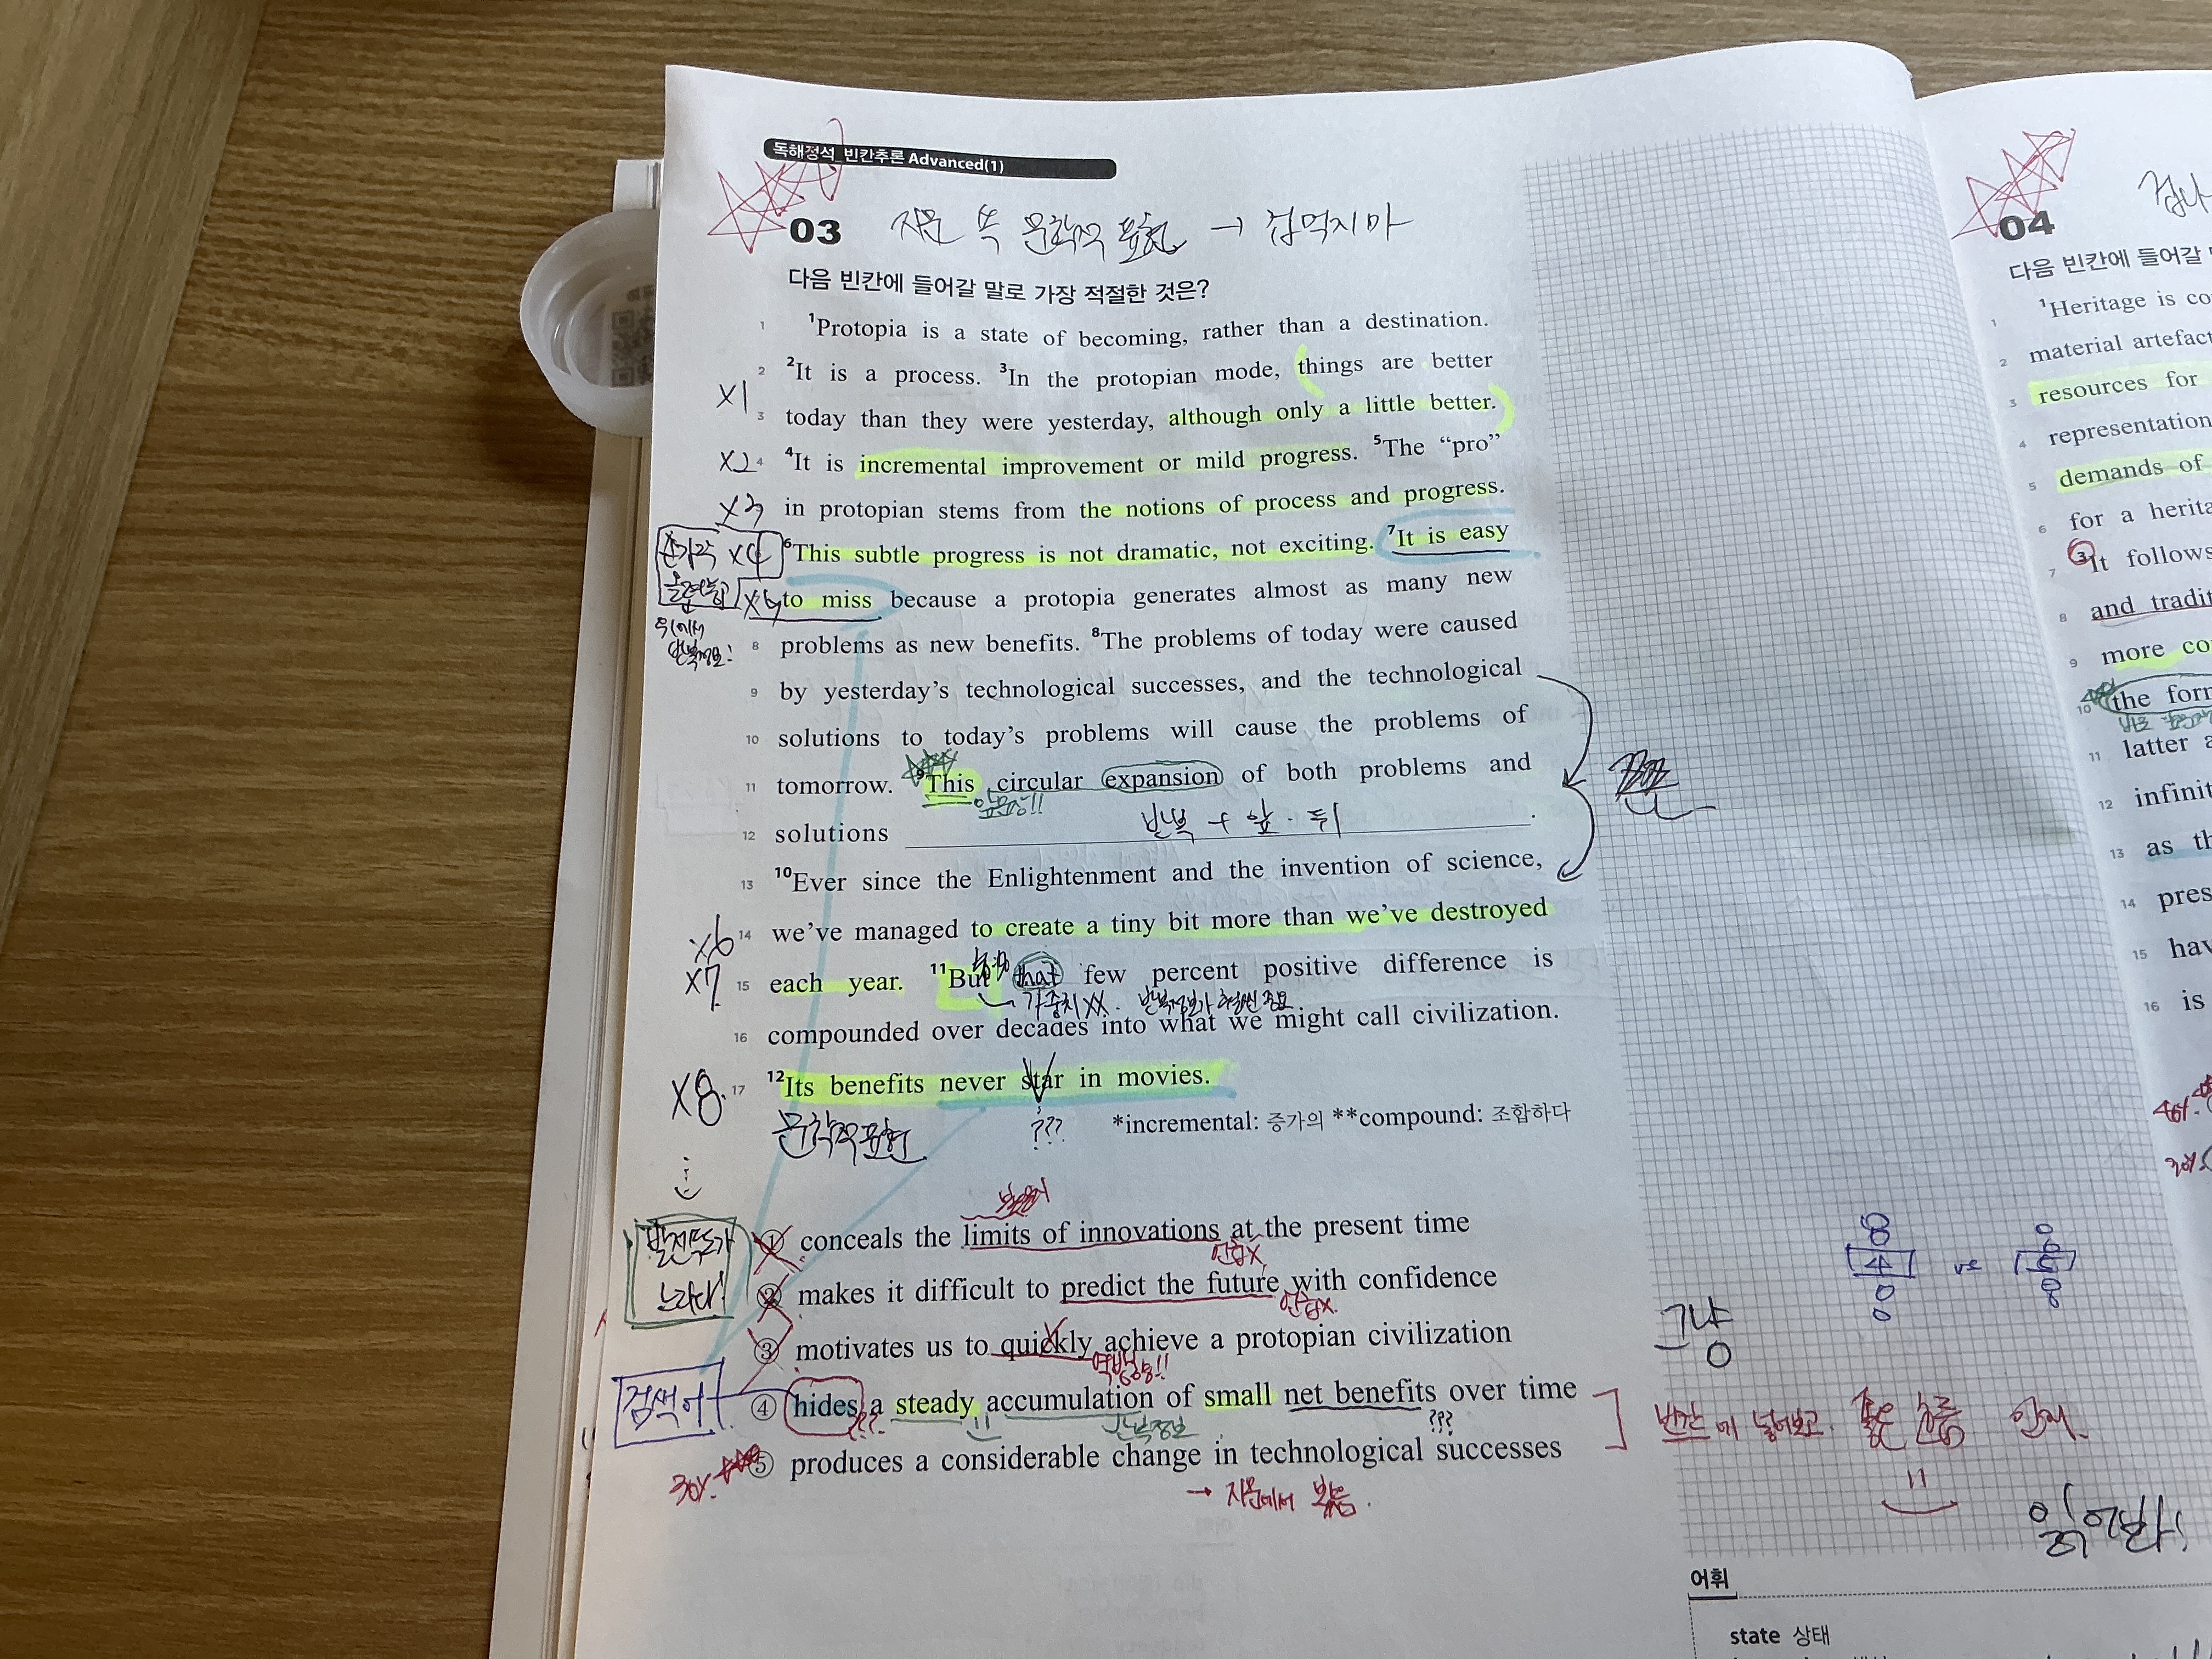 독해정석 빈칸추론 Advanced(1)
03 지문 똑 문학적 표현 → 겁먹지마
다음 빈칸에 들어갈 말로 가장 적절한 것은?
1 ¹Protopia is a state of becoming, rather than a destination.
2 ²It is a process. ³In the protopian mode, things are better
X1
3 today than they were yesterday, although only a little better.
X2 4 ⁴It is incremental improvement or mild progress. ⁵The “pro”
X3 in protopian stems from the notions of process and progress.
X4 ⁶This subtle progress is not dramatic, not exciting. ⁷It is easy
X5 to miss because a protopia generates almost as many new
위에서
반복정보!
8 problems as new benefits. ⁸The problems of today were caused
9 by yesterday’s technological successes, and the technological
10 solutions to today’s problems will cause the problems of
11 tomorrow. ⁹This circular expansion of both problems and
12 solutions 반복 + 앞·뒤 .
13 ¹⁰Ever since the Enlightenment and the invention of science,
X6 14 we’ve managed to create a tiny bit more than we’ve destroyed
X7 15 each year. ¹¹But that few percent positive difference is
가중치XX. 반복정보가 훨씬 중요
16 compounded over decades into what we might call civilization.
X8. 17 ¹²Its benefits never star in movies.
문학적표현
???
*incremental: 증가의 **compound: 조합하다
발전속도가
느리다!
① conceals the limits of innovations at the present time
언급X
② makes it difficult to predict the future with confidence
언급X.
③ motivates us to quickly achieve a protopian civilization
검색어
④ hides a steady accumulation of small net benefits over time
???
반복정보
???
30%. ⑤ produces a considerable change in technological successes
→ 지문에서
빈칸에 넣어보고. 좋은
읽어봐!
그냥
0
8
4
0
0
vs
8
어휘
state 상태
04
다음 빈칸에 들어갈
1 ¹Heritage is co
2 material artefact
3 resources for
4 representation
5 demands of
6 for a herita
7 ³It follows
8 and tradit
9 more co
10 the form
11 latter a
12 infinit
13 as th
14 pres
15 hav
16 is